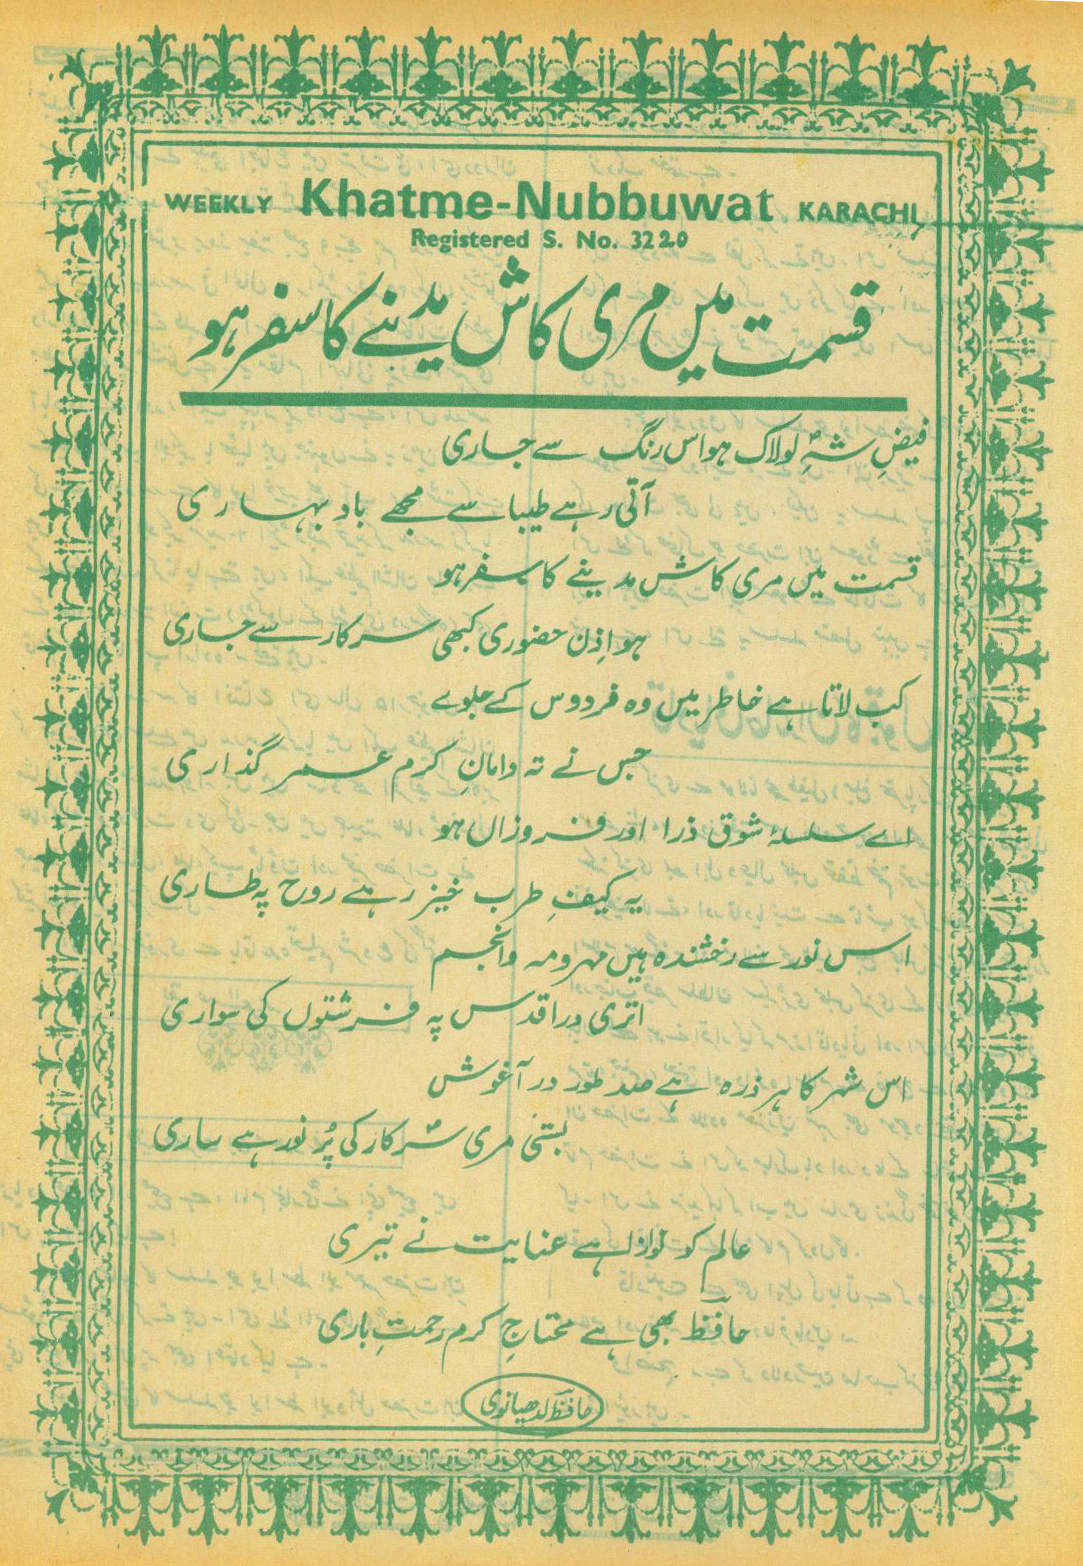 WEEKLY Khatme-Nubbuwat KARACHI
Registered S. No. 3220
قسمت میں مری کاش مدینے کا سفر ہو
فیضِ شہِ لولاک ہو اس رنگ سے جاری
آتی رہے طیبا سے مجھے باد بہاری
قسمت میں مری کاش مدینے کا سفر ہو
ہو اِذن حضوری کبھی سرکار سے جاری
کب لاتا ہے خاطر میں وہ فردوس کے جلوے
جس نے تہ دامانِ کرم عمر گذاری
اے سلسلۂ شوق ذرا اور فروزاں ہو
یہ کیفِ طرب خیز رہے روح پہ طاری
اس نور سے رخشندہ ہیں مہر و مہ و انجم
اتری در اقدس پہ فرشتوں کی سواری
اس شہر کا ہر ذرہ ہے صد طور در آغوش
بستی مری سرکار کی پُر نور ہے ساری
عالم کو نوازا ہے عنایت نے تیری
حافظؔ بھی ہے محتاجِ کرم رحمتِ باری
حافظ لدھیانوی